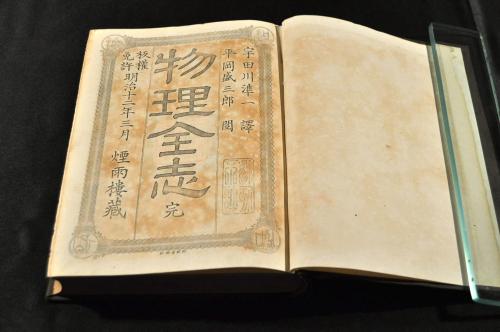 宇田川準一 譯
平岡盛三郎 閲
物理全志 完
板權免許 明治十二年三月 煙雨樓藏